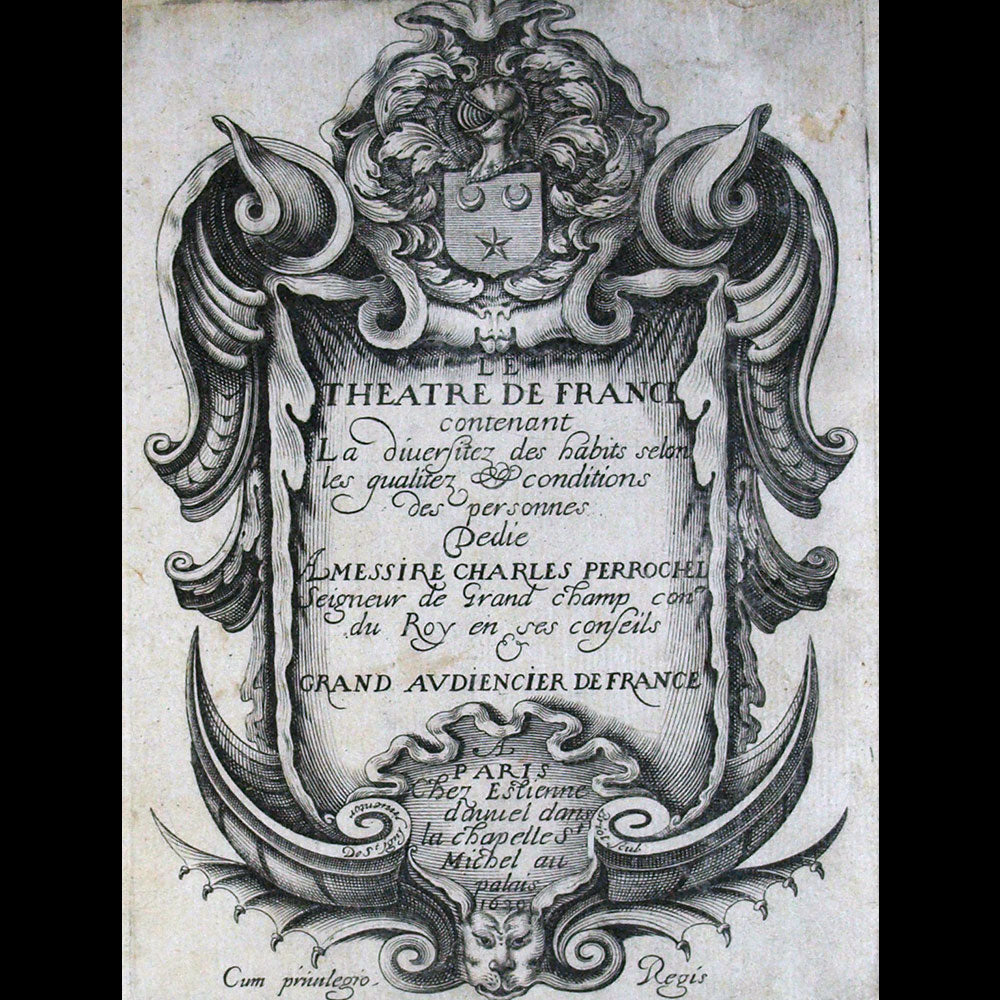 LE
THEATRE DE FRANCE
contenant
La diuersitez des habits selon
les qualitez & conditions
des personnes
Dedie
A MESSIRE CHARLES PERROCHEL
Seigneur de Grand champ con.er
du Roy en ses conseils
&
GRAND AVDIENCIER DE FRANCE
A
PARIS
Chez Estienne
dauuel dans
la chapelle St
Michel au
palais
1629
De St. Igny
Inuentor
Briot scul.
Cum priuilegio. Regis